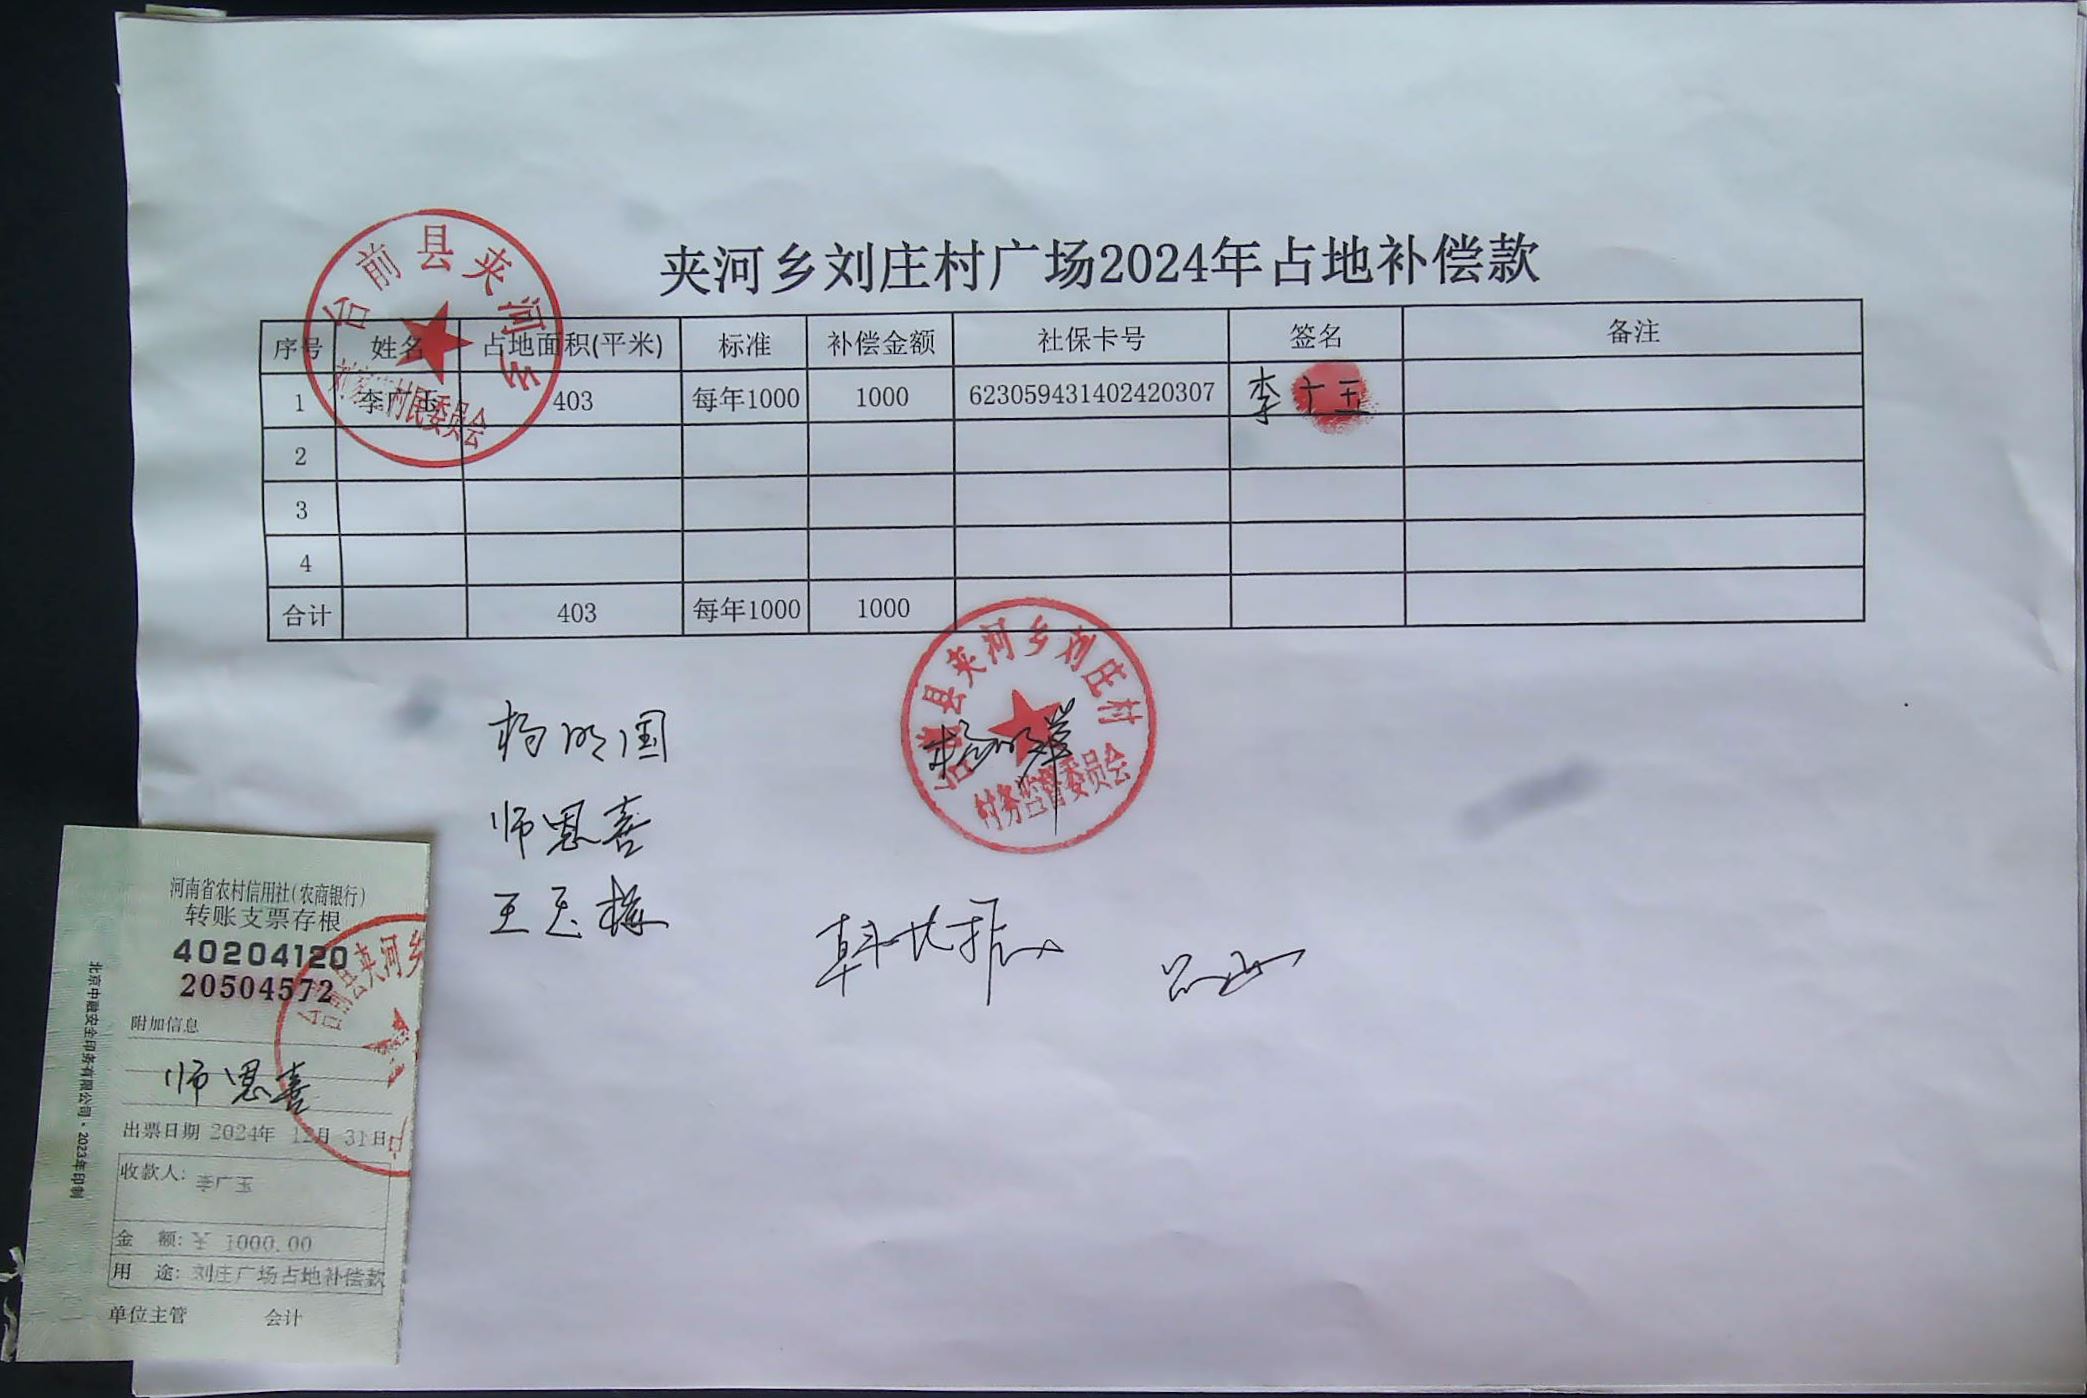 夹河乡刘庄村广场2024年占地补偿款
序号 姓名 占地面积(平米) 标准 补偿金额 社保卡号 签名 备注
1 李广玉 403 每年1000 1000 623059431402420307 李广玉
2
3
4
合计 403 每年1000 1000
台前县夹河乡
村民委员会
台前县夹河乡刘庄村
村务监督委员会
杨明国
师恩喜
王玉梅
河南省农村信用社(农商银行)
转账支票存根
40204120
20504572
附加信息
师恩喜
台前县夹河乡
出票日期 2024年 12月 31日
收款人: 李广玉
金 额: 1000.00
用 途: 刘庄广场占地补偿款
单位主管 会计
北京中融安全印务有限公司·2023年印制